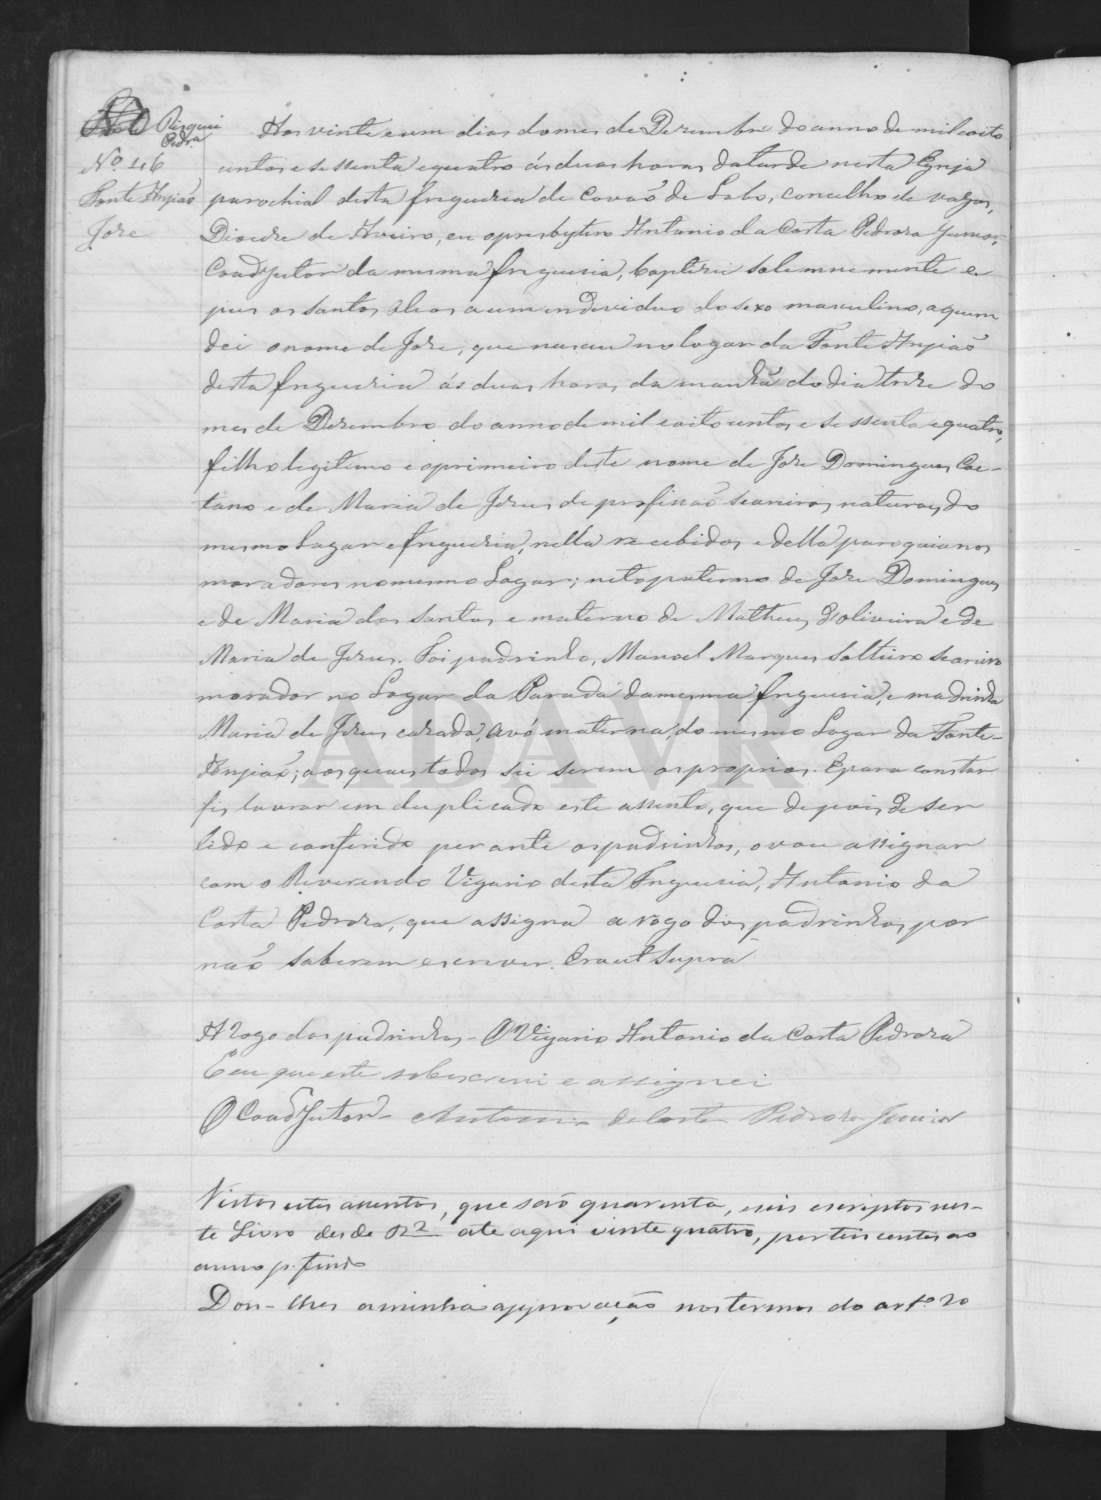 Nº 46
Fonte Anjião
José
Aos vinte e um dias do mes de Dezembro do anno de mil oito
centos e sessenta e quatro ás duas horas da tarde nesta Egreja
parochial desta freguezia de Covão de Lobo, concelho de Vagos,
Diocese de Aveiro, eu o presbytero Antonio da Costa Pedroza Junior,
Coadjutor da mesma freguesia, baptizei solemnemente e
pus os santos oleos a um individuo do sexo masculino, a quem
dei o nome de José, que nasceu no logar da Fonte Anjião
desta freguezia ás duas horas da manhã do dia treze do
mes de Dezembro do anno de mil e oito centos e sessenta e quatro,
filho legitimo e o primeiro deste nome de José Domingues Cae-
tano e de Maria de Jezus de profissão seareiros, naturaes do
mesmo Lugar e freguezia, nella recebidos e della paroquianos
moradores no mesmo Logar; neto paterno de José Domingues
e de Maria dos Santos e materno de Matheus d'Oliveira e de
Maria de Jezus. Foi padrinho, Manoel Marques solteiro seareiro
morador no Logar da Parada da mesma freguesia, e madrinha
Maria de Jezus cazada, avó materna, do mesmo Logar da Fonte-
Anjião; aos quaes todos sei serem os proprios. E para constar
fiz lavrar em duplicado este assento, que depois de ser
lido e conferido perante os padrinhos, o vou assignar
com o Reverendo Vigario desta Freguesia, Antonio da
Costa Pedroza, que assigna a rogo dos padrinhos, por
não saberem escrever. Era ut supra
A rogo dos padrinhos - O Vigario Antonio da Costa Pedroza
E eu que este sobescrevi e assignei
O Coadjutor - Antonio da Costa Pedroza Junior
Vistos estes assentos, que são quarenta, e seis escriptos nes-
te Livro desde 2 até aqui vinte quatro, pertencentes ao
anno p. findo
Dou-lhes a minha approvação nos termos do artº 20
ADAVR